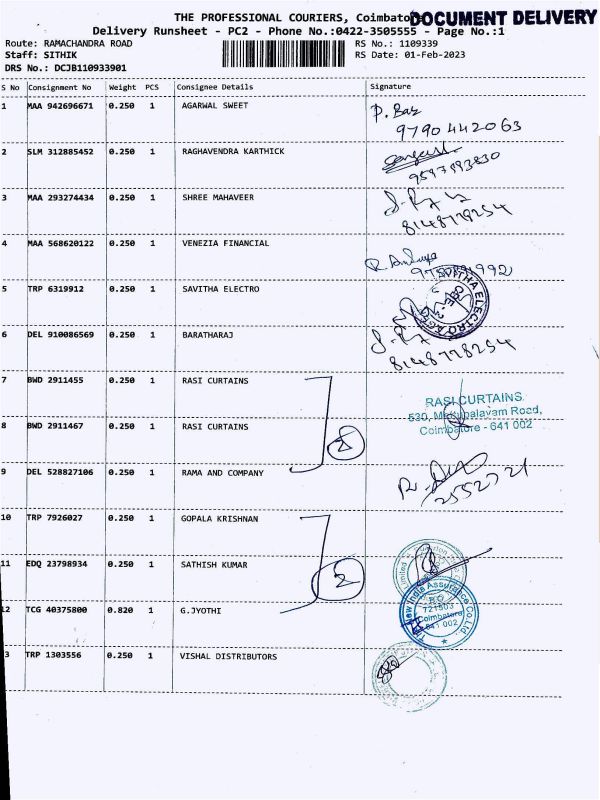 THE PROFESSIONAL COURIERS, Coimbato
DOCUMENT DELIVERY
Delivery Runsheet - PC2 - Phone No.:0422-3505555 - Page No.:1
Route: RAMACHANDRA ROAD RS No.: 1109339
Staff: SITHIK RS Date: 01-Feb-2023
DRS No.: DCJB110933901
S No Consignment No Weight PCS Consignee Details Signature
1 MAA 942696671 0.250 1 AGARWAL SWEET
9790442063
2 SLM 312885452 0.250 1 RAGHAVENDRA KARTHICK
9597893830
3 MAA 293274434 0.250 1 SHREE MAHAVEER
4 MAA 568620122 0.250 1 VENEZIA FINANCIAL
5 TRP 6319912 0.250 1 SAVITHA ELECTRO
SAVITHA ELECTRO
6 DEL 910086569 0.250 1 BARATHARAJ
8148778254
7 BWD 2911455 0.250 1 RASI CURTAINS
RASI CURTAINS
530, Mettupalayam Road,
Coimbatore - 641 002
8 BWD 2911467 0.250 1 RASI CURTAINS
2
9 DEL 528827106 0.250 1 RAMA AND COMPANY
2552721
10 TRP 7926027 1 GOPALA KRISHNAN
11 EDQ 23798934 0.250 1 SATHISH KUMAR
2
Limited
12 TCG 40375800 0.820 1 G.JYOTHI
The New India Assurance Co.Ltd.
R.O
721503
Coimbatore
641 002
3 TRP 1303556 0.250 1 VISHAL DISTRIBUTORS